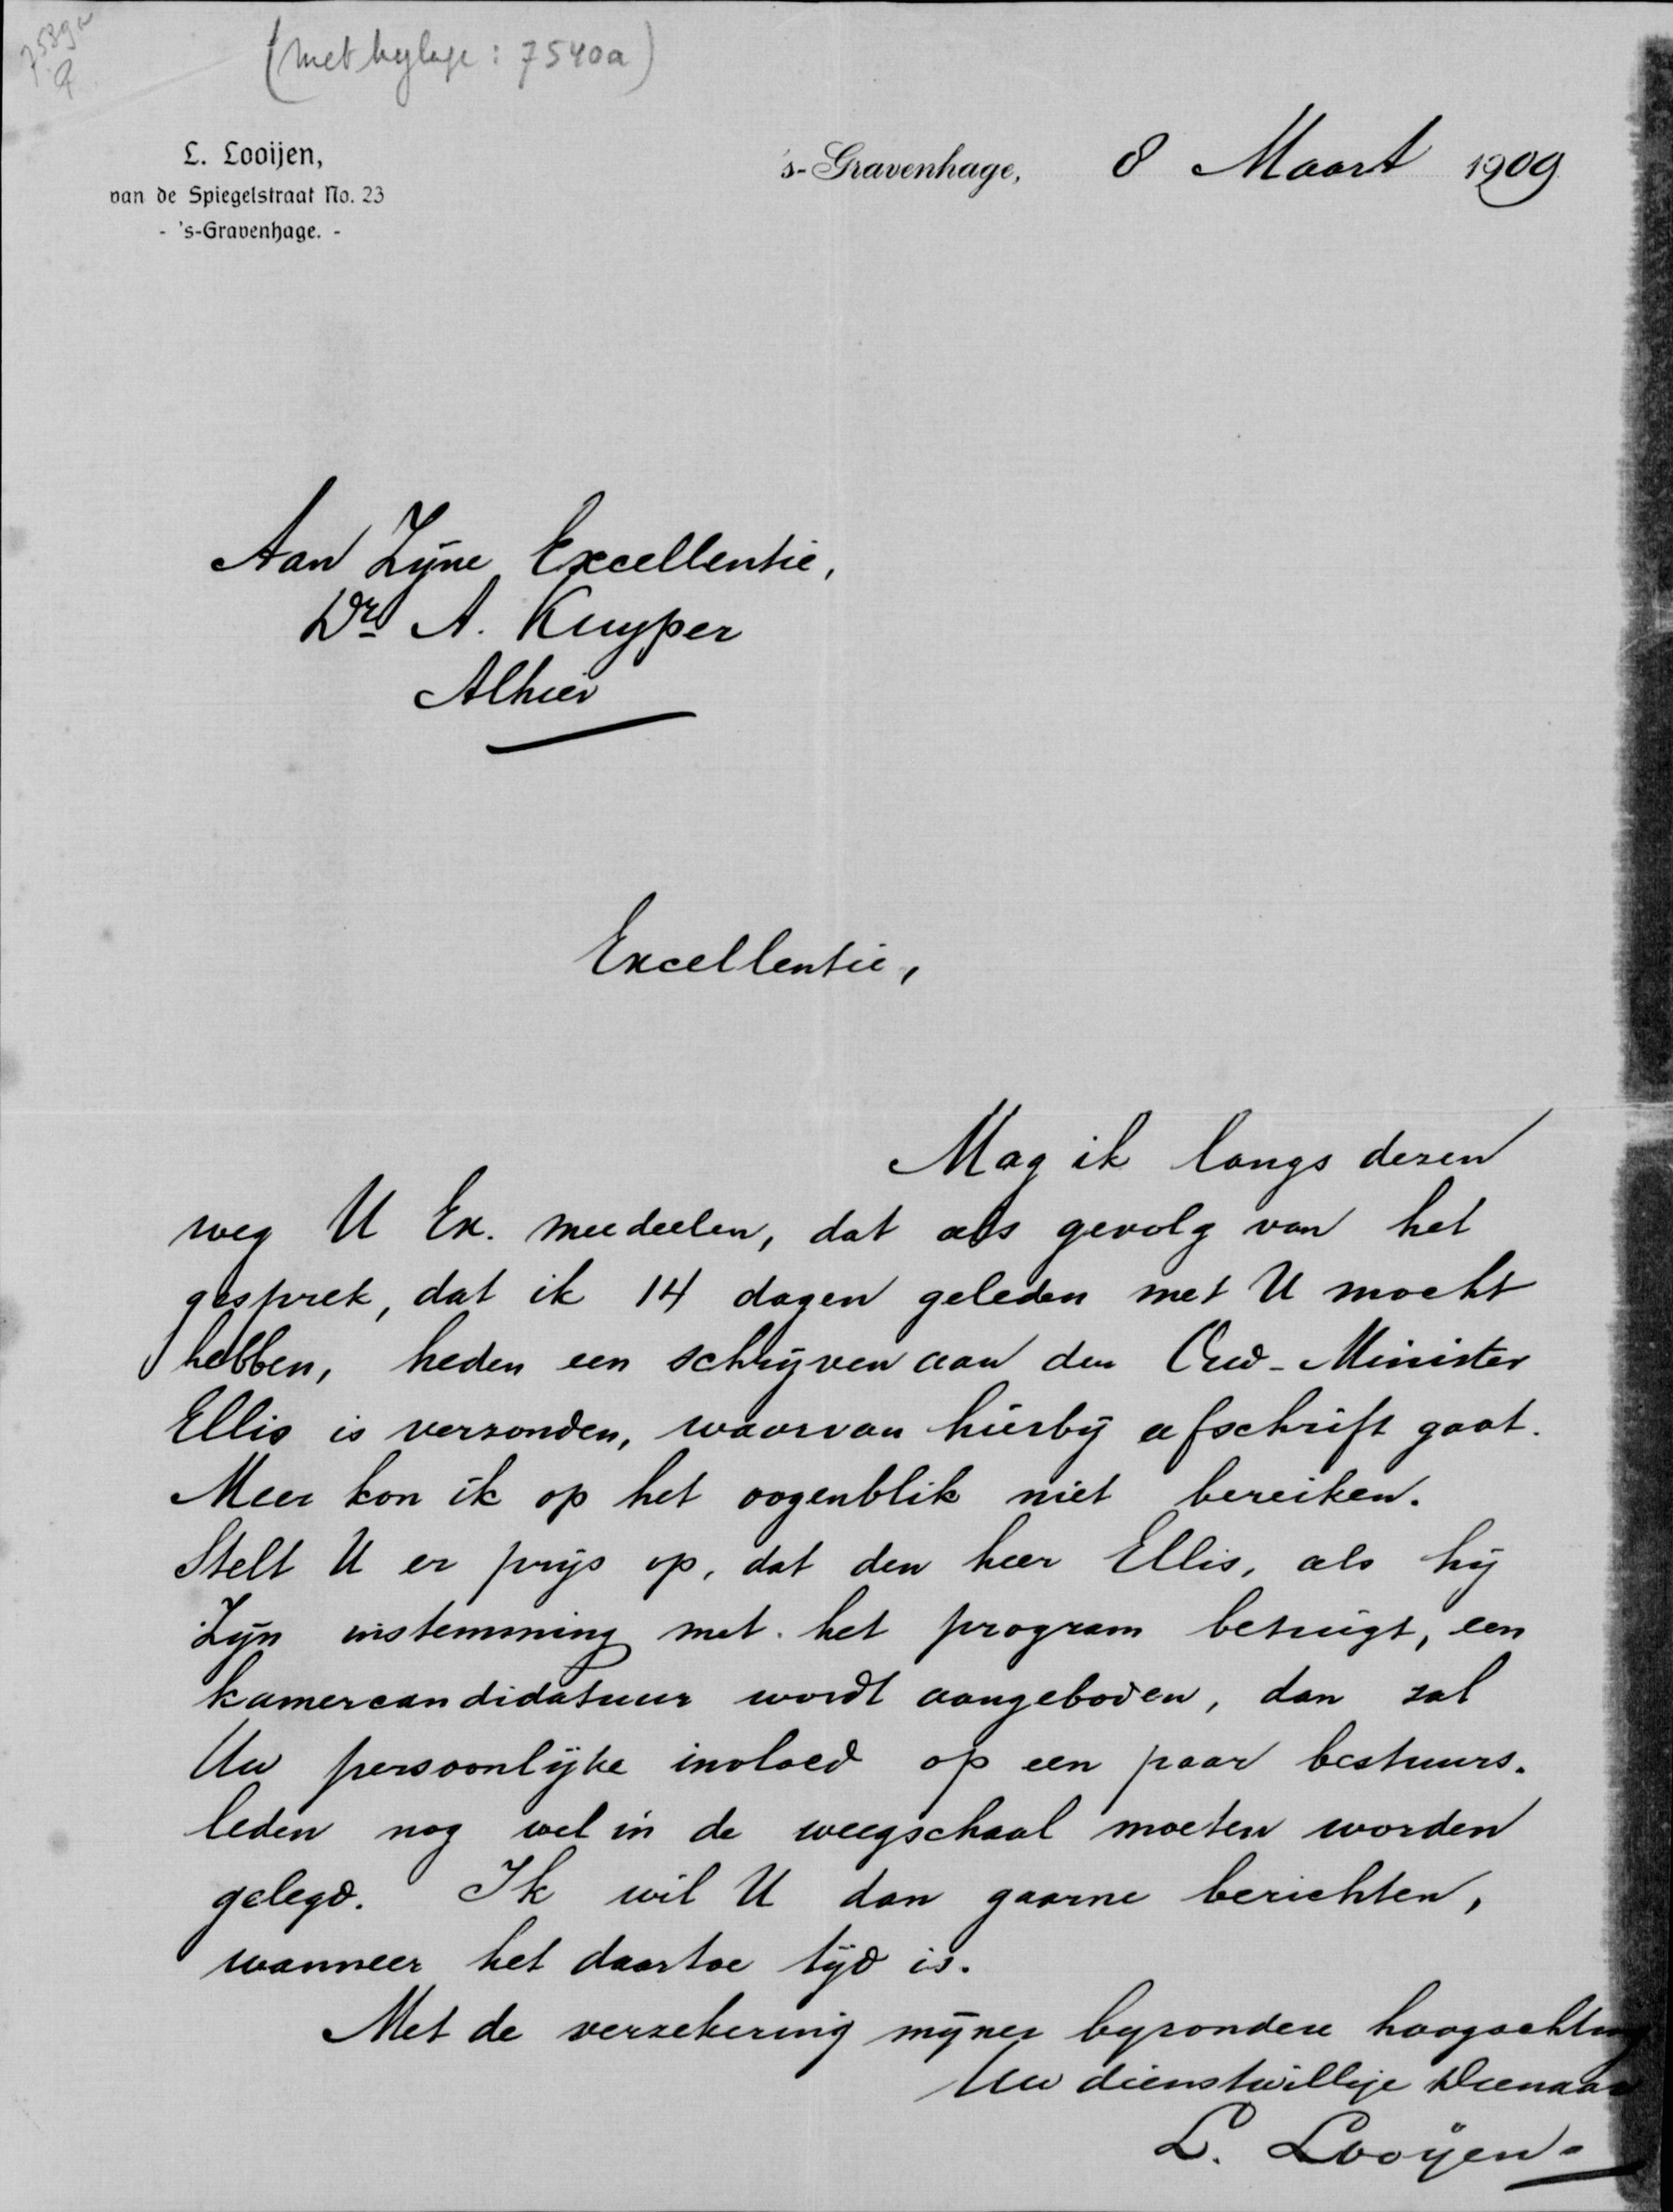 (met bylage: 7540a)
L. Looijen,
van de Spiegelstraat No. 23
- 's-Gravenhage. -
's-Gravenhage, 8 Maart 1909
Aan Zijne Excellentie,
Dr A. Kuyper
Alhier
Excellentie,
Mag ik langs dezen
weg U Ex. meedeelen, dat als gevolg van het
gesprek, dat ik 14 dagen geleden met U mocht
hebben, heden een schrijven aan den Oud-Minister
Ellis is verzonden, waarvan hierbij afschrift gaat.
Meer kon ik op het oogenblik niet bereiken.
Stelt U er prijs op, dat den heer Ellis, als hij
Zijn instemming met het program betuigt, een
kamercandidatuur wordt aangeboden, dan zal
Uw persoonlijke invloed op een paar bestuurs-
leden nog wel in de weegschaal moeten worden
gelegd. Ik wil U dan gaarne berichten,
wanneer het daartoe tijd is.
Met de verzekering mijner byzondere hoogachting
Uw dienstwillige Dienaar
L. Looijen.